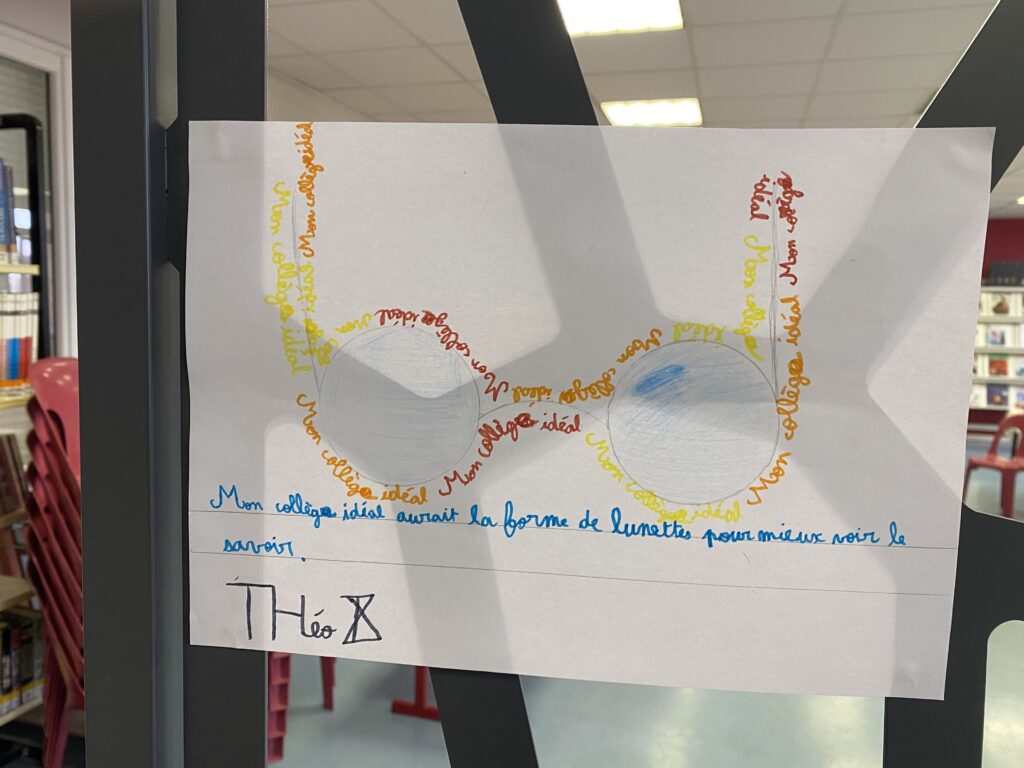 Mon collège idéal
Mon collège idéal
Mon collège idéal
Mon collège idéal
Mon collège idéal
Mon collège idéal
Mon collège idéal
Mon collège idéal
Mon collège idéal
Mon collège idéal
Mon collège idéal
Mon collège idéal
Mon collège idéal
Mon collège idéal aurait la forme de lunettes pour mieux voir le
savoir.
THéo